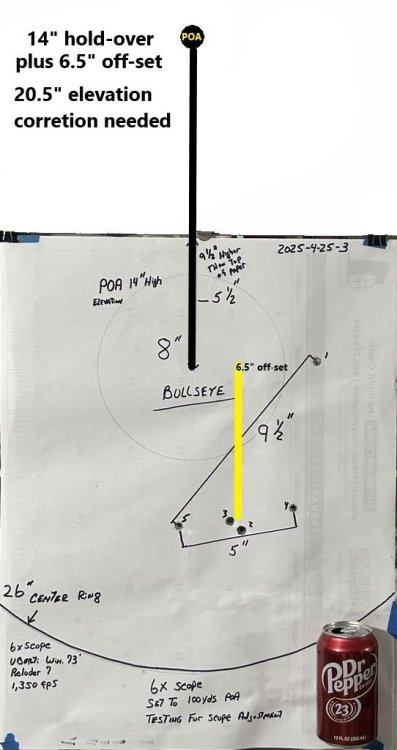 14" hold-over
plus 6.5" off-set
20.5" elevation
corretion needed
POA
2025-4-25-3
9½" Higher
Then Top
of Paper
POA 14" High
ELEVATION
5½"
8"
6.5" off-set
1
BULLSEYE
9½"
4
5
3
2
5"
26" CENTER RING
6x Scope
UBERTI Win. 73'
Reloder 7
1,350 fps
6X Scope
SET To 100yds POA
TESTING For Scope Adjustment
Dr
Pepper
23
12 FL OZ (355 mL)